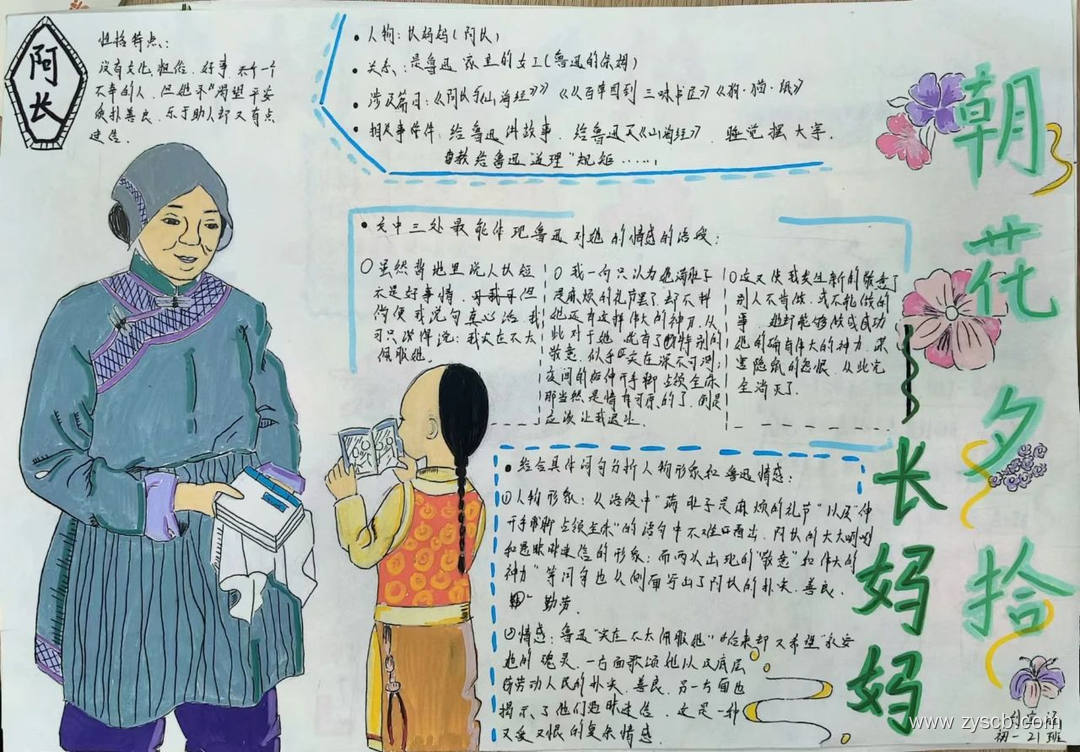 阿长
性格特点：
没有文化、粗俗、好事，是一个
不幸的人，但她却渴望平安
质朴善良、乐于助人却又有点
迷信。
•人物：长妈妈（阿长）
•关系：是鲁迅家里的女工（鲁迅的保姆）
•涉及篇目：《阿长与《山海经》》《从百草园到三味书屋》《狗·猫·鼠》
•相关事件件：给鲁迅讲故事、给鲁迅买《山海经》、睡觉摆大字、
教给鲁迅道理"规矩……
•文中三处最能体现鲁迅对她的情感的语段：
○虽然背地里说人长短
不是好事情，但
倘使我说句真心话，我
可只得说：我实在不大
佩服她。
○我一向只以为她满肚子
是麻烦的礼节罢了，却不料
她还有这样伟大的神力。从
此对于她就有了特别的
敬意，似乎实在深不可测；
夜间的伸开手脚，占领全床，
那当然是情有可原的了，倒是
应该让我退让。
○这又使我发生新的敬意了
别人不肯做，或不能做的
事，她却能够做成功
她的确有伟大的神力。谋
害隐鼠的怨恨，从此完
全消灭了。
•结合具体词句分析人物形象和鲁迅情感：
①人物形象：从语段中"满肚子是麻烦的礼节"以及"伸
开手脚占领全床"的语句中不难看出，阿长的大大咧咧
和愚昧迷信的形象；而两次出现的"敬意"和"伟大的
神力"等词句也从侧面写出了阿长的朴实、善良、
勤劳。
②情感：鲁迅"实在不大佩服她"，后来却又希望"永安
她的魂灵，一方面歌颂她以及底层
劳动人民的朴实、善良，另一方面也
揭示了他们愚昧迷信，这是一种
又爱又恨的复杂情感。
朝花夕拾
长妈妈
初一21班
www.zyscb.com